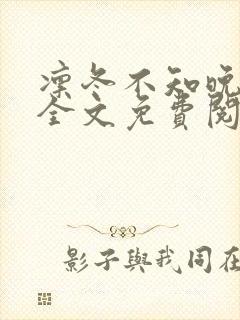 凛冬不知晚
全文免費閱
影子與我同在